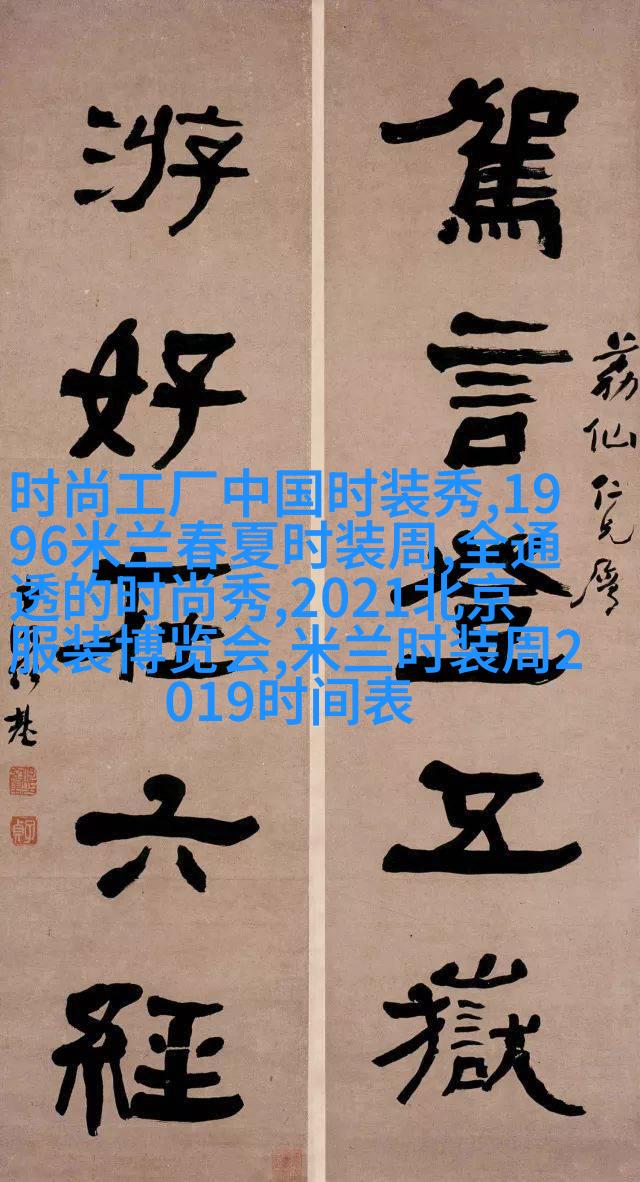 荔仙仁兄屬
駕言登五嶽
游好在六經
基
时尚工厂中国时装秀,19
96米兰春夏时装周,全通
透的时尚秀,2021北京
服装博览会,米兰时装周2
019时间表